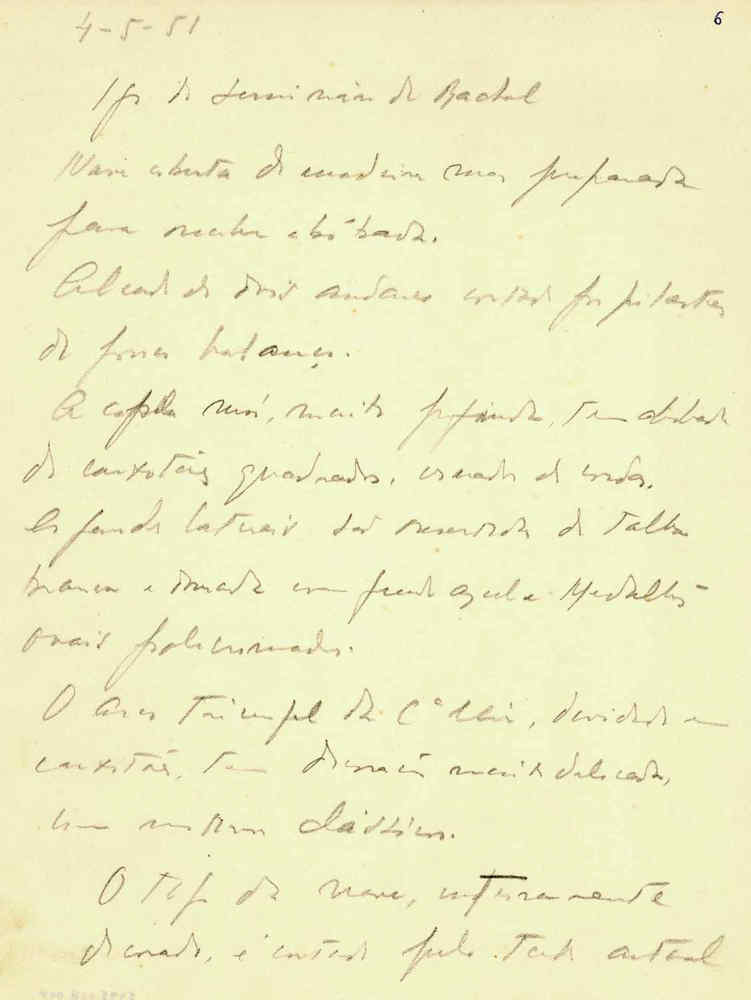 6
4-5-51
de Bachal
Nave coberta de madeira mas preparada
para receber abóbada.
Alçado de dois andares cortado por pilastras
de pouco balanço.
A capela mór, muito profunda, tem abóbada
de caixotões quadrados,
As paredes laterais são revestidas de talha
branca e dourada com fundo azul e Medalhões
ovais policromados.
O arco triunfal da C.ª Mór, dividido em
caixotões, tem decoração muito delicada,
com motivos clássicos.
O této da nave, inteiramente
decorado, é cortado pelo této actual